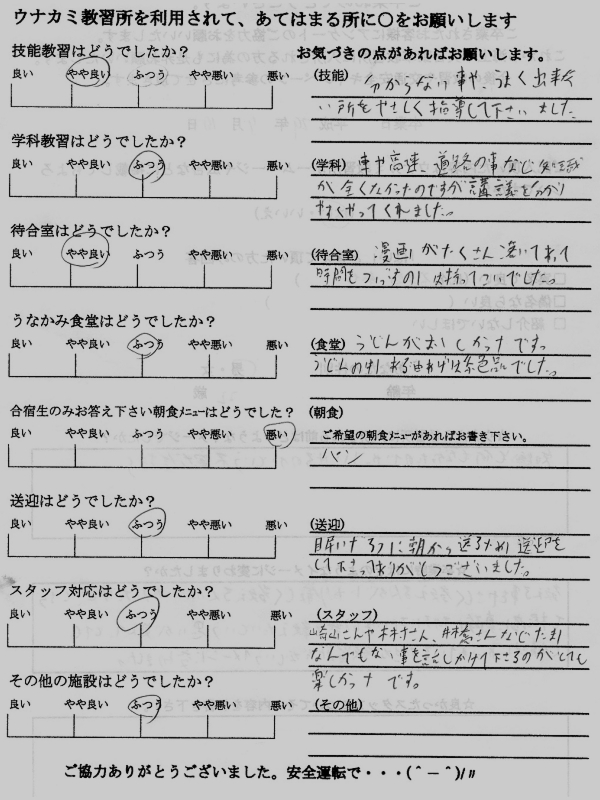 ウナカミ教習所を利用されて、あてはまる所に○をお願いします
技能教習はどうでしたか？
お気づきの点があればお願いします。
良い やや良い ふつう やや悪い 悪い
(技能) 分からない事や、うまく出来ない所をやさしく指導して下さいました。
学科教習はどうでしたか？
良い やや良い ふつう やや悪い 悪い
(学科) 車や高速、道路の事など知識
が全くなかったのですが講議を分かり
やすくやってくれました。
待合室はどうでしたか？
良い やや良い ふつう やや悪い 悪い
(待合室) 漫画がたくさん置いてあって
時間をつぶすのには持ってこいでした。
うなかみ食堂はどうでしたか？
良い やや良い ふつう やや悪い 悪い
(食堂) うどんがおいしかったです。
うどんの中にある油あげは絶品でした。
合宿生のみお答え下さい朝食ﾒﾆｭｰはどうでしたか？
良い やや良い ふつう やや悪い 悪い
(朝食)
ご希望の朝食ﾒﾆｭｰがあればお書き下さい。
パン
送迎はどうでしたか？
良い やや良い ふつう やや悪い 悪い
(送迎)
眠いだろうに朝から遅くまで送迎を
して下さってありがとうございました。
スタッフ対応はどうでしたか？
良い やや良い ふつう やや悪い 悪い
(スタッフ)
さんや さん、 さんなどたまに
なんでもない事を話しかけて下さるのがとても
楽しかったです。
その他の施設はどうでしたか？
良い やや良い ふつう やや悪い 悪い
(その他)
ご協力ありがとうございました。安全運転で・・・(＾－＾)/〃